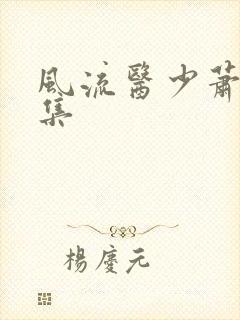 風流醫少蕭
集
楊慶元